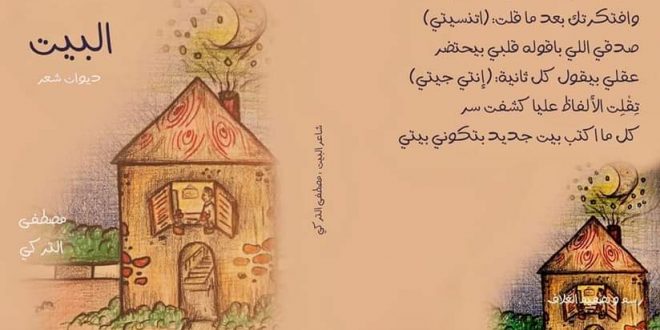 البيت
ديوان شعر
مصطفى
التركي
شاعر البيت : مصطفى التركي
وافتكرتك بعد ما قلت: (اتنسيتي)
صدقي اللي باقوله قلبي بيحتضر
عقلي بيقول كل ثانية: (إنتي جيتي)
تِقْلِت الألفاظ عليا كشفت سر
كل ما اكتب بيت جديد بتكوني بيتي
رسم و تصميم الغلاف